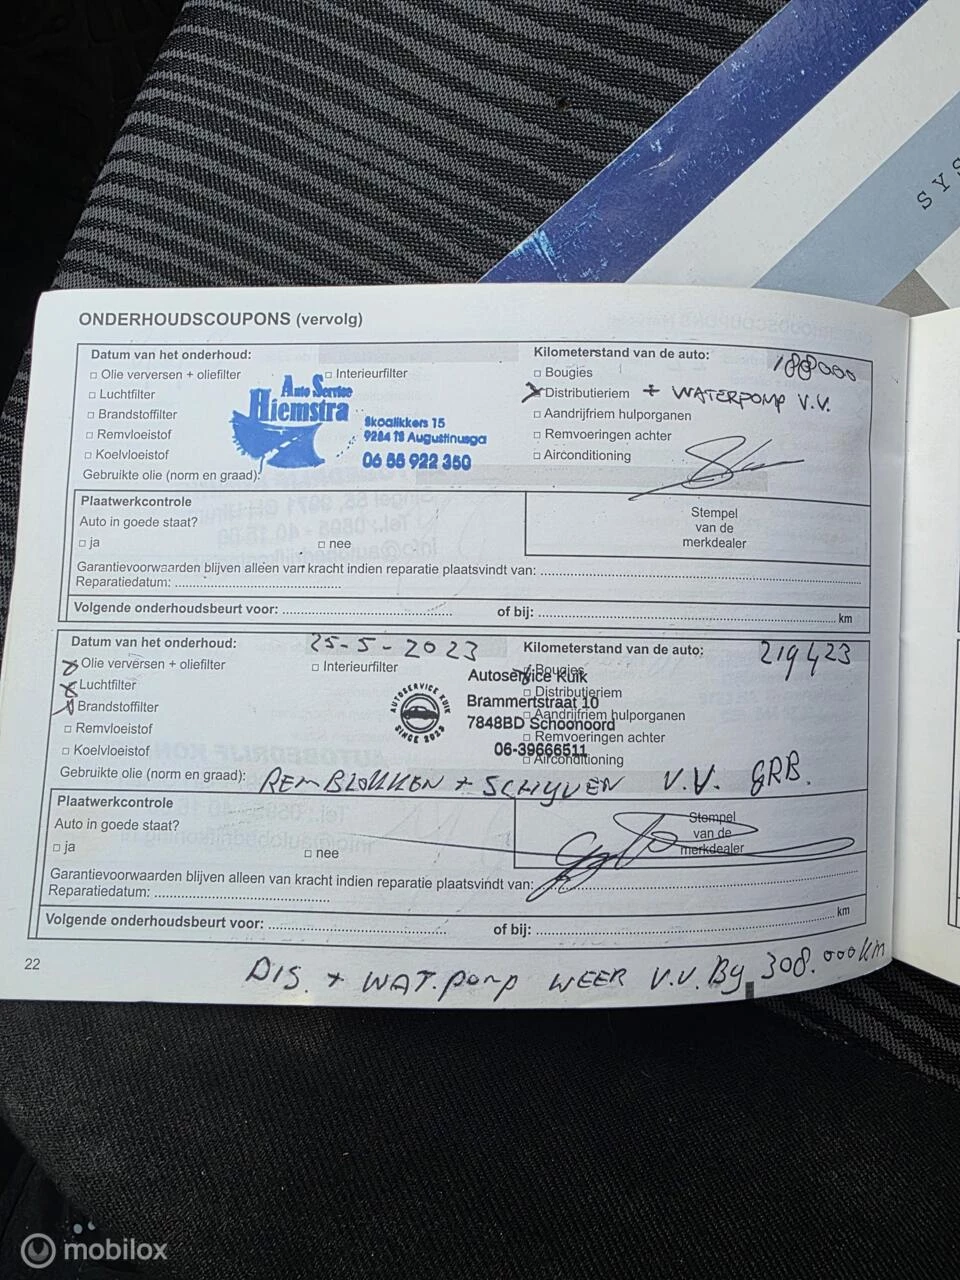 SYS
ONDERHOUDSCOUPONS (vervolg)
Datum van het onderhoud:
Olie verversen + oliefilter
Interieurfilter
Luchtfilter
Brandstoffilter
Remvloeistof
Koelvloeistof
Gebruikte olie (norm en graad):
Auto Service
Hiemstra
Skoallikkers 15
9284 TS Augustinusga
06 55 922 350
Kilometerstand van de auto: 188000
Bougies
Distributieriem + WATERPOMP V.V.
Aandrijfriem hulporganen
Remvoeringen achter
Airconditioning
Plaatwerkcontrole
Auto in goede staat?
ja
nee
Stempel
van de
merkdealer
Garantievoorwaarden blijven alleen van kracht indien reparatie plaatsvindt van:
Reparatiedatum:
Volgende onderhoudsbeurt voor: of bij: km
Datum van het onderhoud: 25-5-2023
Olie verversen + oliefilter
Interieurfilter
Luchtfilter
Brandstoffilter
Remvloeistof
Koelvloeistof
AUTOSERVICE KUIK
Autoservice Kuik
Brammertstraat 10
7848BD Schoonoord
06-39666511
Kilometerstand van de auto: 219423
Bougies
Distributieriem
Aandrijfriem hulporganen
Remvoeringen achter
Airconditioning
Gebruikte olie (norm en graad): REMBLOKKEN + SCHIJVEN V.V. GRB.
Plaatwerkcontrole
Auto in goede staat?
ja
nee
Stempel
van de
merkdealer
Garantievoorwaarden blijven alleen van kracht indien reparatie plaatsvindt van:
Reparatiedatum:
Volgende onderhoudsbeurt voor: of bij: km
22
DIS. + WAT.POMP WEER V.V. By 308.000 km
mobilox